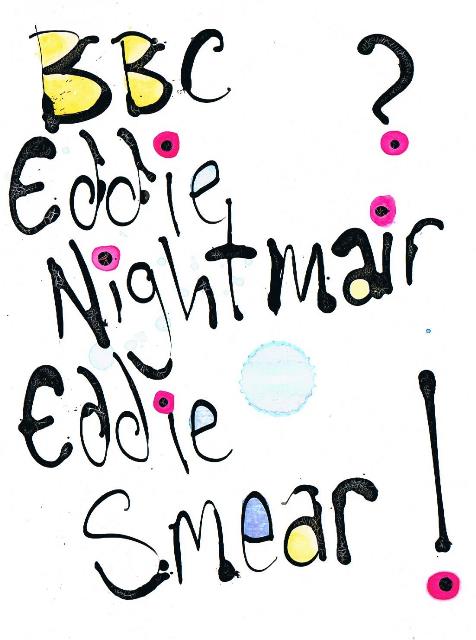 BBC ?
Eddie
Nightmair
Eddie
Smear !